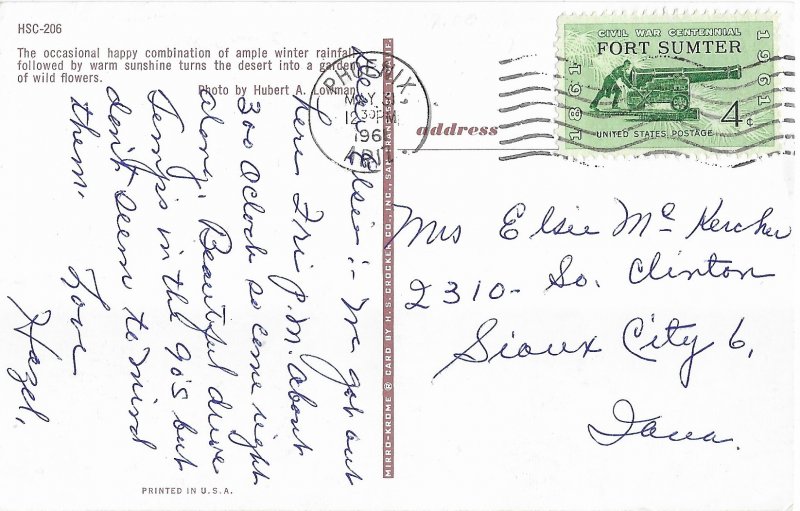 HSC-206
The occasional happy combination of ample winter rainfall
followed by warm sunshine turns the desert into a garden
of wild flowers.
Photo by Hubert A. Lowman
Dear Elsie:- We got out
here Fri P.M. about
300 Oclock so come right
along. Beautiful drive
Temps in the 90s but
don't seem to mind
them.
Love
Hazel.
PRINTED IN U.S.A.
MIRRO-KROME ® CARD BY H. S. CROCKER CO., INC., SAN FRANCISCO 1, CALIF.
PHOENIX,
MAY
12 30 PM
196
ARIZ.
address
CIVIL WAR CENTENNIAL
FORT SUMTER
1861
1961
4¢
UNITED STATES POSTAGE
Mrs Elsie Mc Kercher
2310- So. Clinton
Sioux City 6,
Iowa.